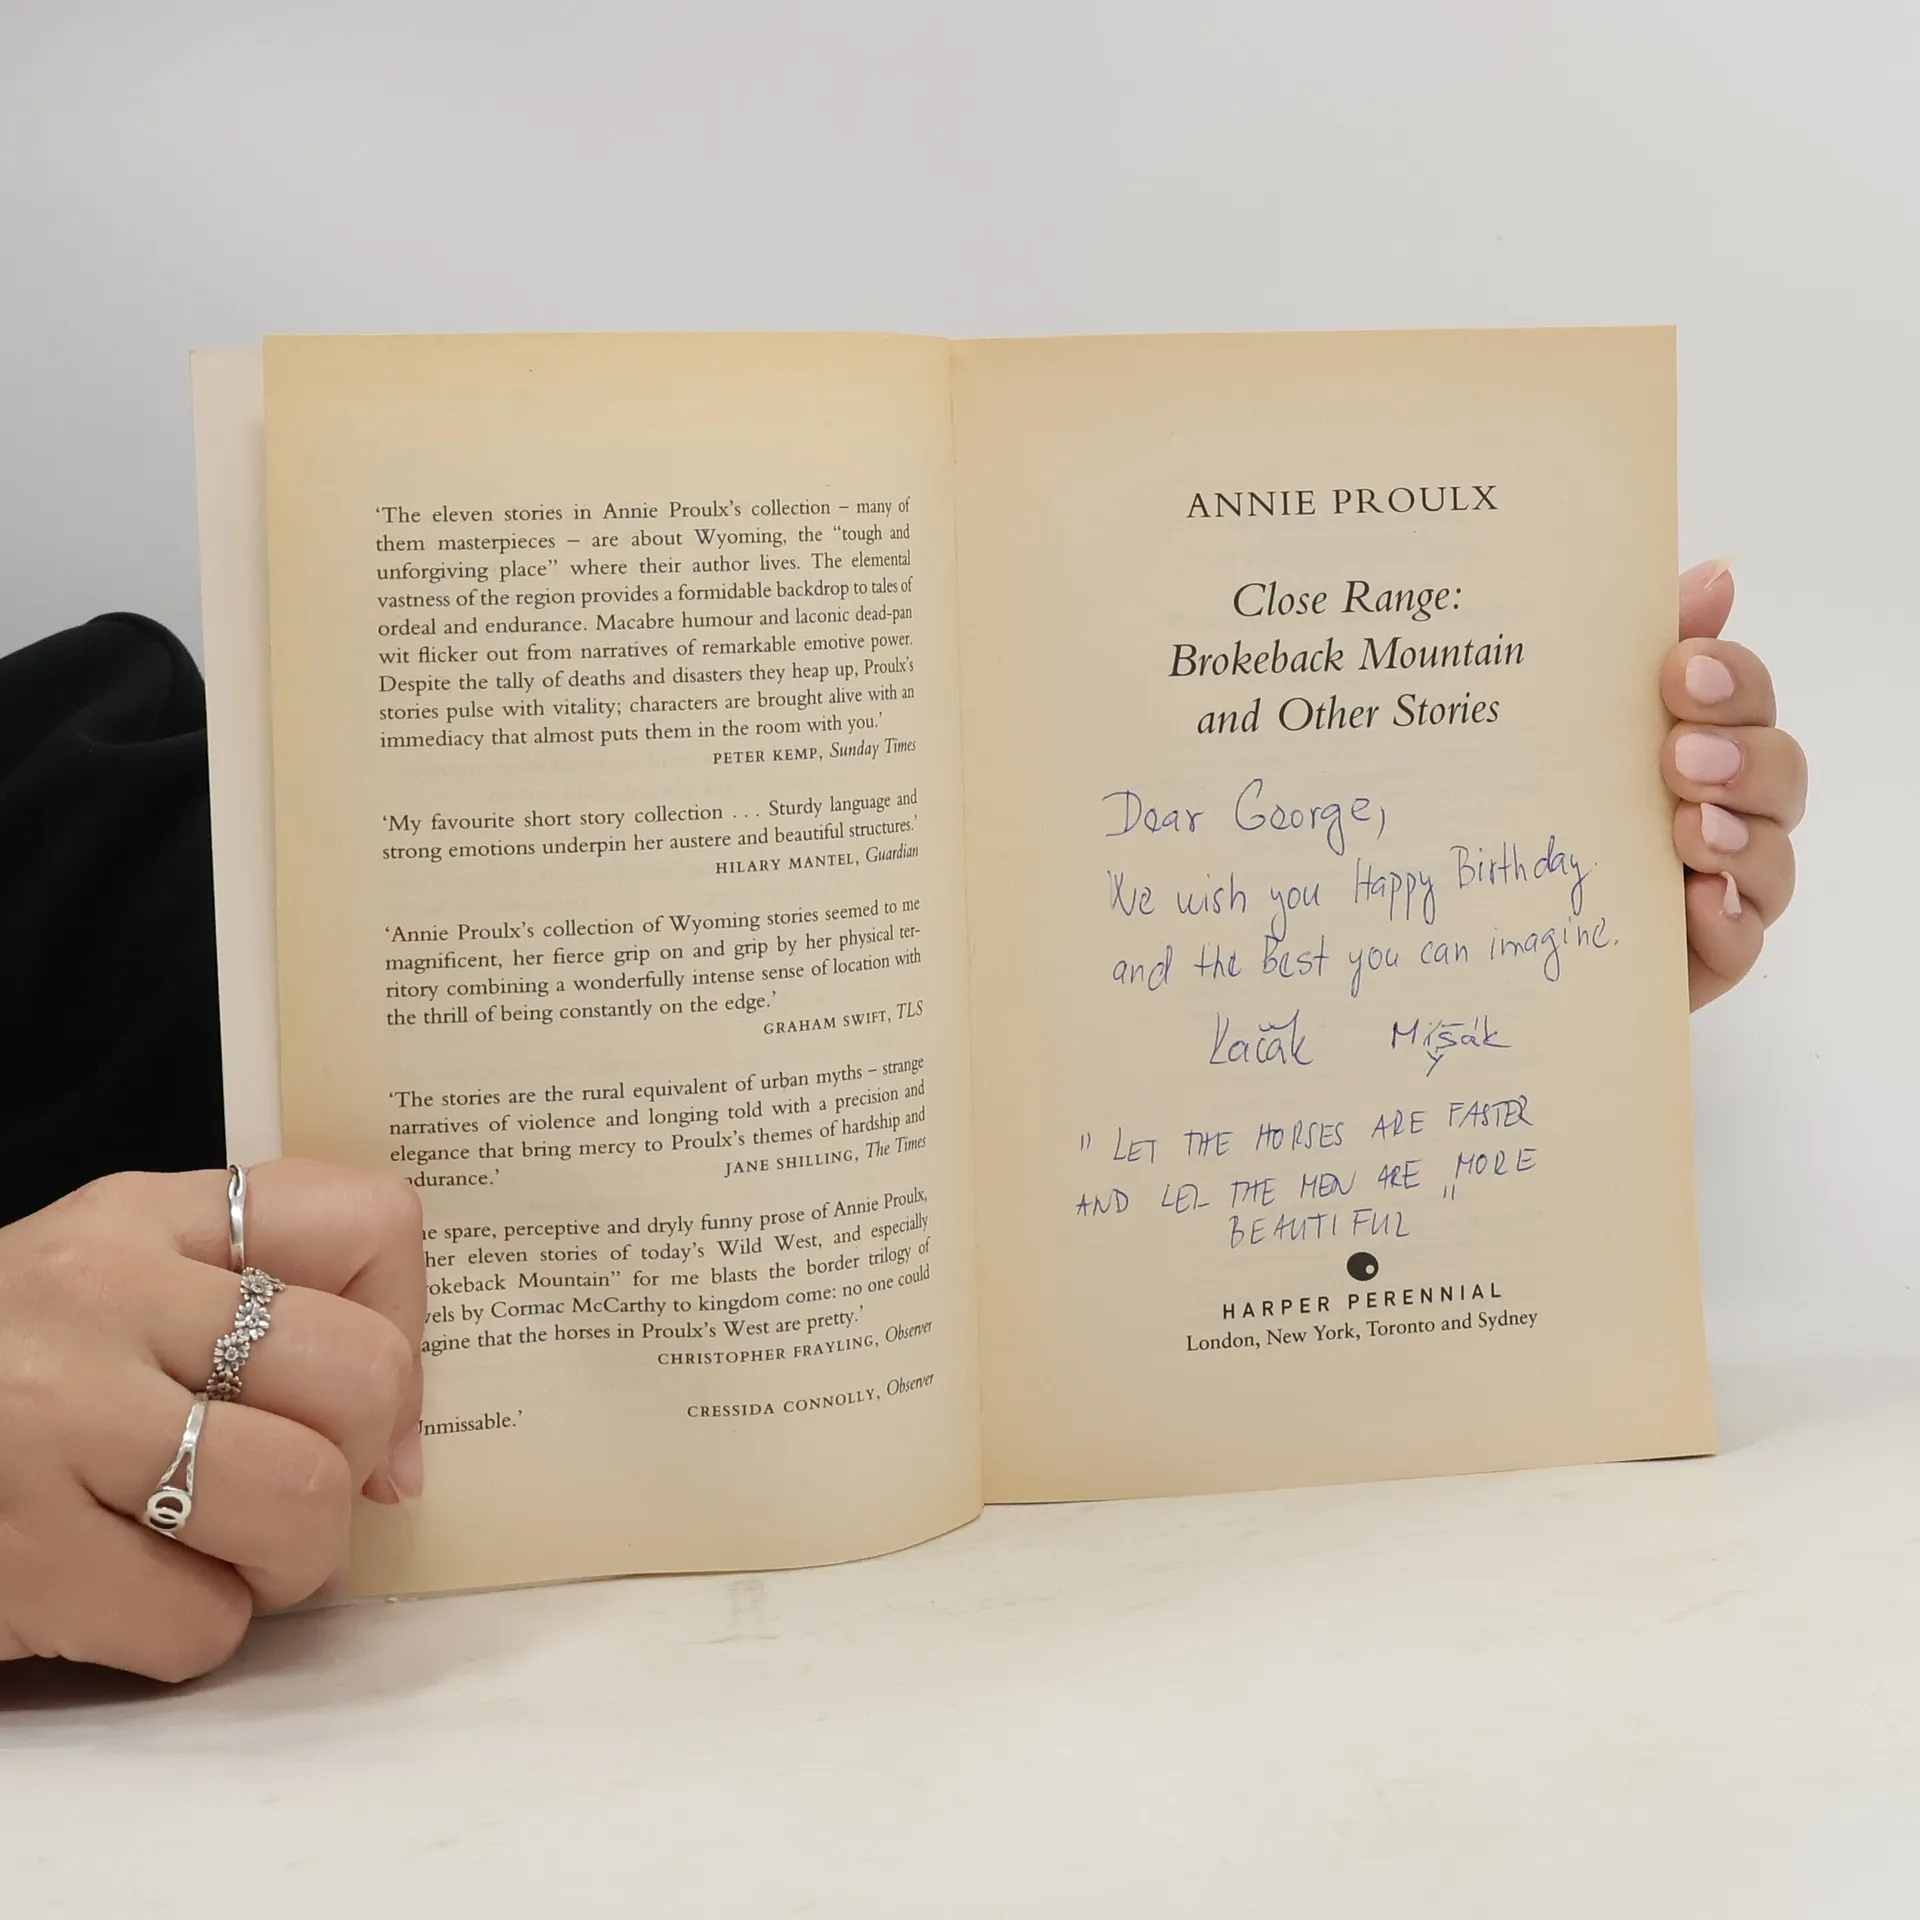 ‘The eleven stories in Annie Proulx’s collection – many of
them masterpieces – are about Wyoming, the “tough and
unforgiving place” where their author lives. The elemental
vastness of the region provides a formidable backdrop to tales of
ordeal and endurance. Macabre humour and laconic dead-pan
wit flicker out from narratives of remarkable emotive power.
Despite the tally of deaths and disasters they heap up, Proulx’s
stories pulse with vitality; characters are brought alive with an
immediacy that almost puts them in the room with you.’
PETER KEMP, Sunday Times
‘My favourite short story collection . . . Sturdy language and
strong emotions underpin her austere and beautiful structures.’
HILARY MANTEL, Guardian
‘Annie Proulx’s collection of Wyoming stories seemed to me
magnificent, her fierce grip on and grip by her physical ter-
ritory combining a wonderfully intense sense of location with
the thrill of being constantly on the edge.’
GRAHAM SWIFT, TLS
‘The stories are the rural equivalent of urban myths – strange
narratives of violence and longing told with a precision and
elegance that bring mercy to Proulx’s themes of hardship and
ndurance.’
JANE SHILLING, The Times
e spare, perceptive and dryly funny prose of Annie Proulx,
her eleven stories of today’s Wild West, and especially
okeback Mountain” for me blasts the border trilogy of
vels by Cormac McCarthy to kingdom come: no one could
agine that the horses in Proulx’s West are pretty.’
CHRISTOPHER FRAYLING, Observer
nmissable.’
CRESSIDA CONNOLLY, Observer
ANNIE PROULX
Close Range:
Brokeback Mountain
and Other Stories
Dear George,
We wish you Happy Birthday
and the best you can imagine.
Kačák Myšák
" LET THE HORSES ARE FASTER
AND LET THE MEN ARE MORE
BEAUTIFUL "
HARPER PERENNIAL
London, New York, Toronto and Sydney